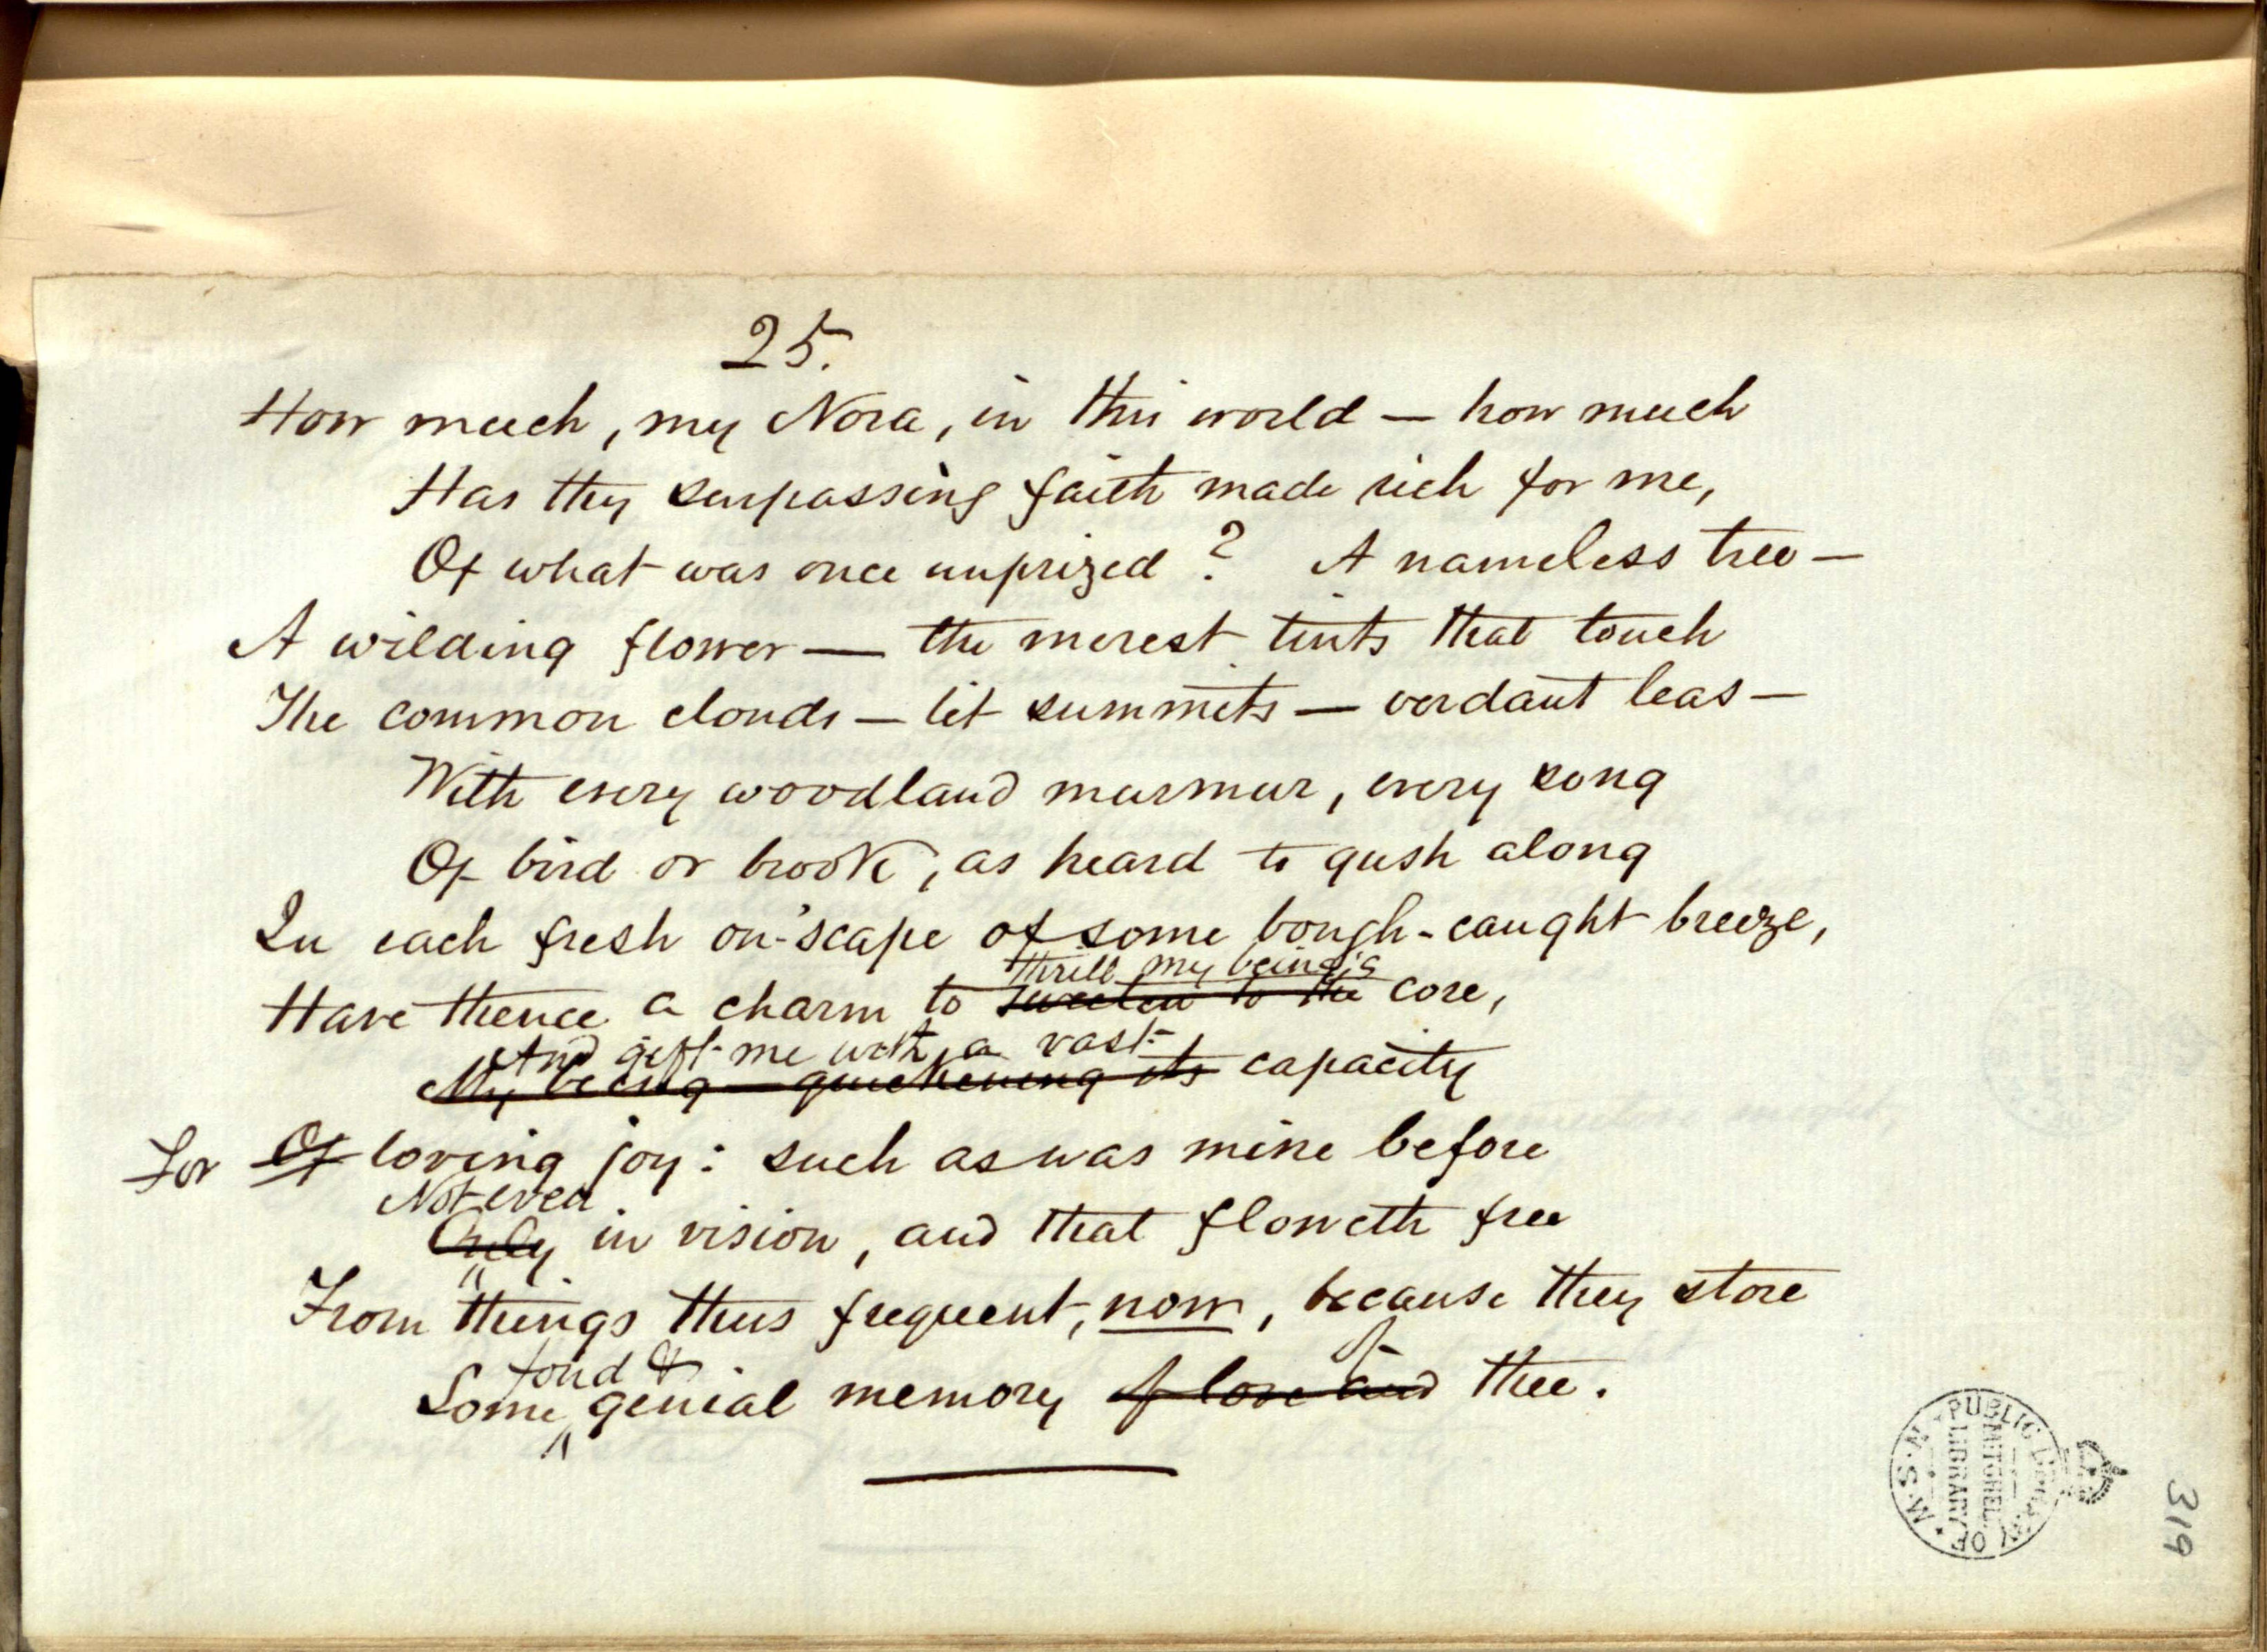 25.
How much, my Nora, in this world — how much
Has thy surpassing faith made rich for me,
Of what was once unprized? A nameless tree —
A wilding flower — the merest tints that touch
The common clouds — lit summits — verdant leas —
With every woodland murmur, every song
Of bird or brook, as heard to gush along
In each fresh on-'scape of some bough-caught breeze,
thrill my being's
Have thence a charm to sweeten to the core,
And gift me with a vast
My being — quickening its capacity
For Of loving joy: such as was mine before
Not even
Only in vision, and that floweth free
From things thus frequent, now, because they store
fond & of
Some genial memory of love and thee.
PUBLIC LIBRARY OF N.S.W
MITCHELL
LIBRARY
319